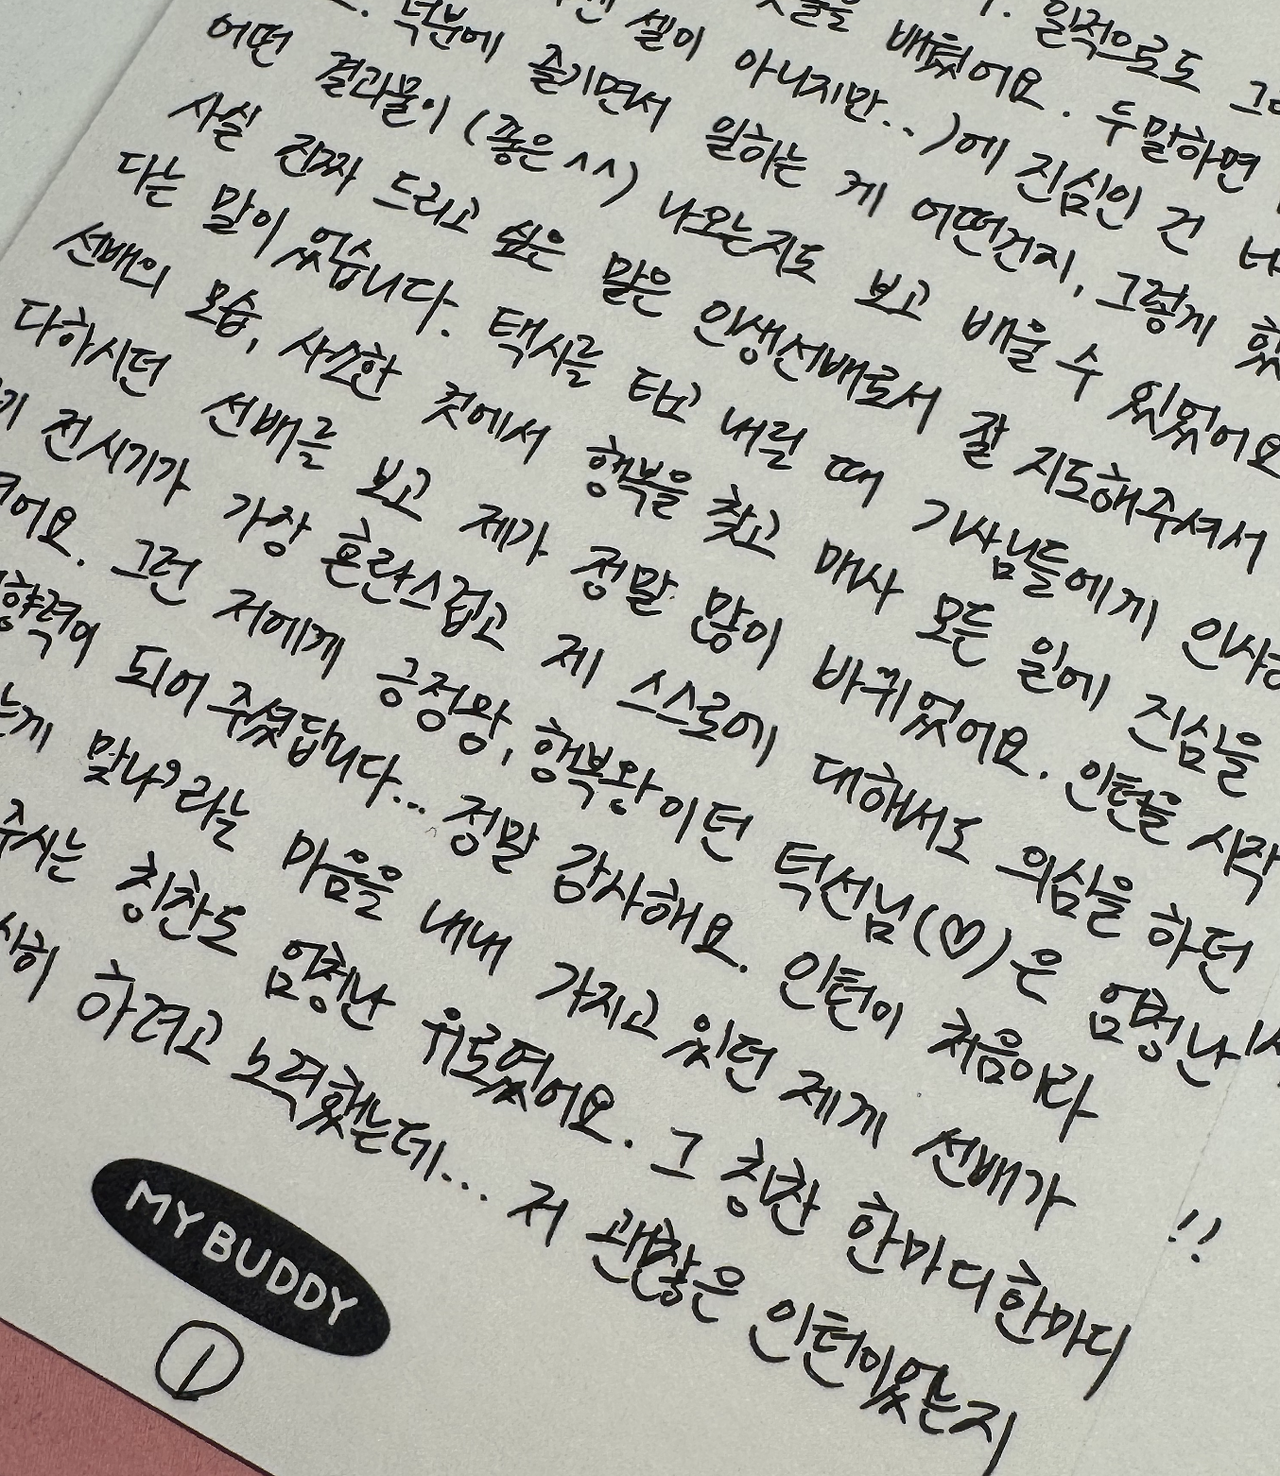 일적으로도
배웠어요. 두말하면
셀이 아니지만..)에 진심인 건
덕분에 즐기면서 일하는 게 어떤건지, 그렇게
어떤 결과물이 (좋은^^) 나오는지도 보고 배울 수 있었어요
사실 진짜 드리고 싶은 말은 인생선배로서 잘 지도해주셔서
다는 말이 없습니다. 택시를 타고 내릴 때 기사님들에게 인사하
선배의 모습, 사소한 것에서 행복을 찾고 매사 모든 일에 진심을
다하시던 선배를 보고 제가 정말 많이 바뀌었어요. 인턴을 시작
기 전 시기가 가장 혼란스럽고 제 스스로에 대해서도 의심을 하던
어요. 그런 저에게 긍정왕, 행복왕이던 턱선님(♡)은 엄청난
향력이 되어 주셨답니다... 정말 감사해요. 인턴이 처음이라
는게 맞나?'라는 마음을 내내 가지고 있던 제게 선배가 !!
주시는 칭찬도 엄청난 위로였어요. 그 칭찬 한마디한마디
히 하려고 노력했는데... 저 괜찮은 인턴이었는지
MY BUDDY
①